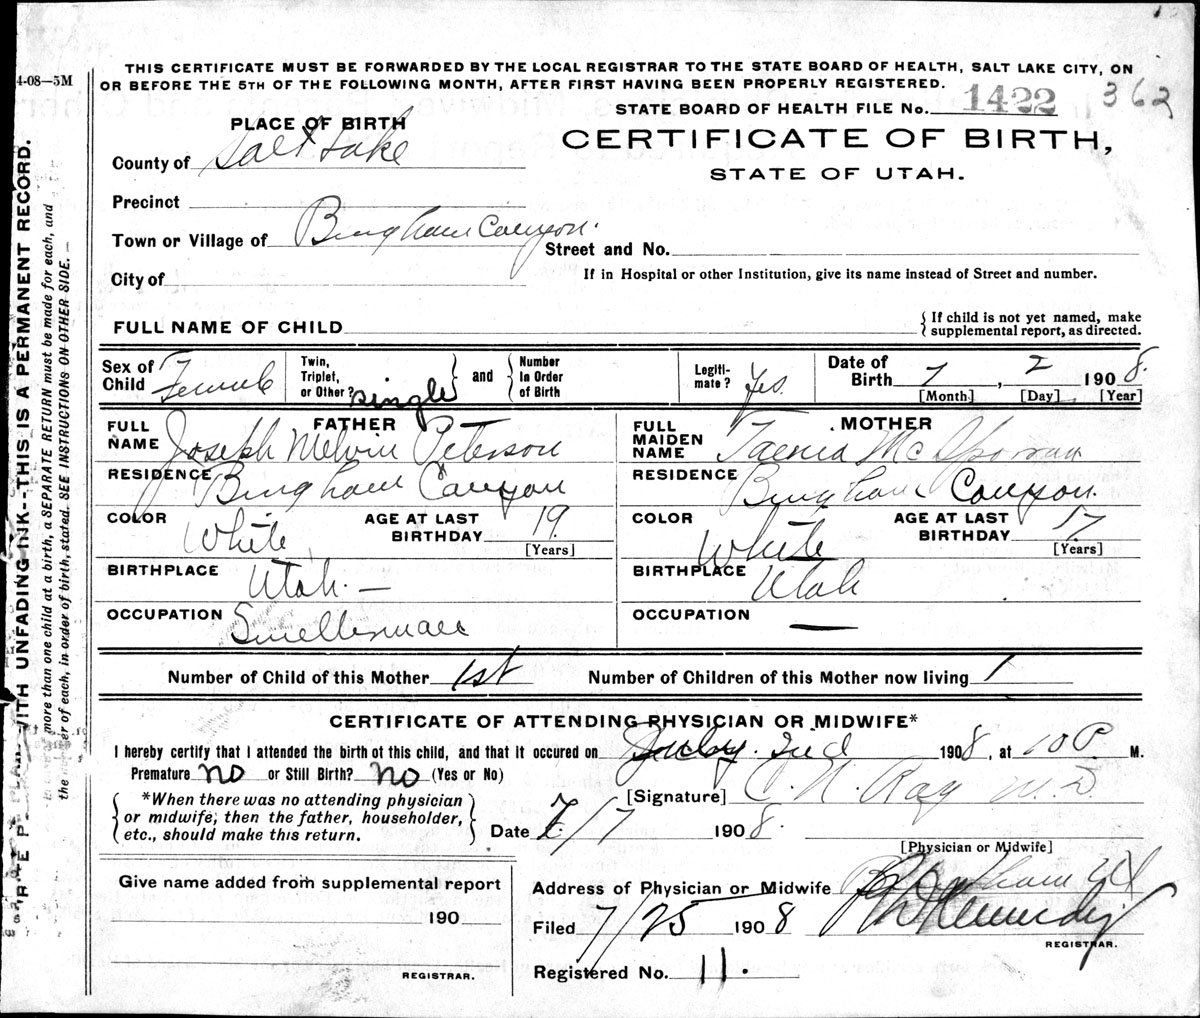 4-08—5M
THIS CERTIFICATE MUST BE FORWARDED BY THE LOCAL REGISTRAR TO THE STATE BOARD OF HEALTH, SALT LAKE CITY, ON
OR BEFORE THE 5TH OF THE FOLLOWING MONTH, AFTER FIRST HAVING BEEN PROPERLY REGISTERED.
STATE BOARD OF HEALTH FILE No. 1422 362
PLACE OF BIRTH
CERTIFICATE OF BIRTH,
County of Salt Lake
STATE OF UTAH.
Precinct
Town or Village of Bingham Canyon.
Street and No.
City of
If in Hospital or other Institution, give its name instead of Street and number.
FULL NAME OF CHILD
{ If child is not yet named, make
supplemental report, as directed.
Sex of Child Female
Twin, Triplet, or Other? single } and { Number In Order of Birth
Legiti-mate? Yes.
Date of Birth 7, 2 1908.
[Month] [Day] [Year]
FATHER
FULL NAME Joseph Melvin Peterson
RESIDENCE Bingham Canyon
COLOR White AGE AT LAST BIRTHDAY 19.
[Years]
BIRTHPLACE Utah. —
OCCUPATION Smelterman
MOTHER
FULL MAIDEN NAME Mc
RESIDENCE Bingham Canyon.
COLOR White AGE AT LAST BIRTHDAY 17
[Years]
BIRTHPLACE Utah
OCCUPATION —
Number of Child of this Mother 1st Number of Children of this Mother now living 1
CERTIFICATE OF ATTENDING PHYSICIAN OR MIDWIFE*
I hereby certify that I attended the birth of this child, and that it occured on July 1908, at 10 P. M.
Premature no or Still Birth? no (Yes or No)
[Signature] C. N. Ray M.D.
{ *When there was no attending physician
or midwife, then the father, householder,
etc., should make this return. }
Date 7/7 1908.
[Physician or Midwife]
Give name added from supplemental report
190
REGISTRAR.
Address of Physician or Midwife Bingham
Filed 7/25 1908
REGISTRAR.
Registered No. 11.
WITH UNFADING INK--THIS IS A PERMANENT RECORD.
more than one child at a birth, a SEPARATE RETURN must be made for each, and
the number of each, in order of birth, stated. SEE INSTRUCTIONS ON OTHER SIDE.